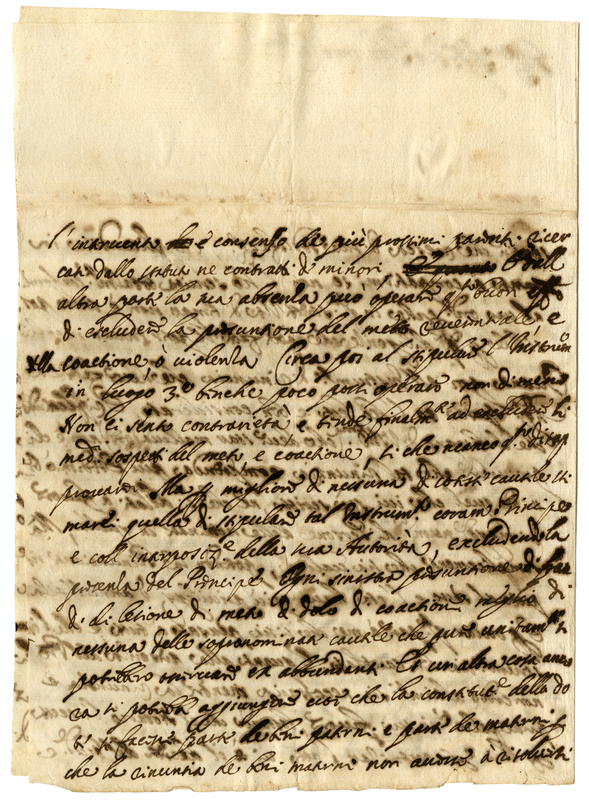 l'intervento e consenso de più prossimi parenti ricer
cati dallo statuto ne contratti di minori Dall
altra parte la sua absenza può operare buon
di escludere la presuntione del meto reverentiale, e
coactione, ò violenza Circa poi al stipulare l'Instrum
in luogo 3.º benche poco possi operare non di meno
Non ci sento contrarietà e tende finalm.te ad escludere li
med.i sospetti del meto, e coactione,
Ma p migliore di nessuna di cautele sti
marei quella di stipulare tal Instrum.to coram Principe
e coll' interposit.e della sua Autorità, escludendo la
presenza del Principe ogni sinistra presuntione di
di lesione di meto di dolo di coactione meglio di
nessuna delle sopranominate cautele che pure unitam.te si
potrebbero osservare ex abbundanti Et un altra cosa anco
ra si potrebbe aggiungere cioè che la constitut.e della do
te si facesse parte de beni paterni e parte de materni
che la rinuntia de beni materni non